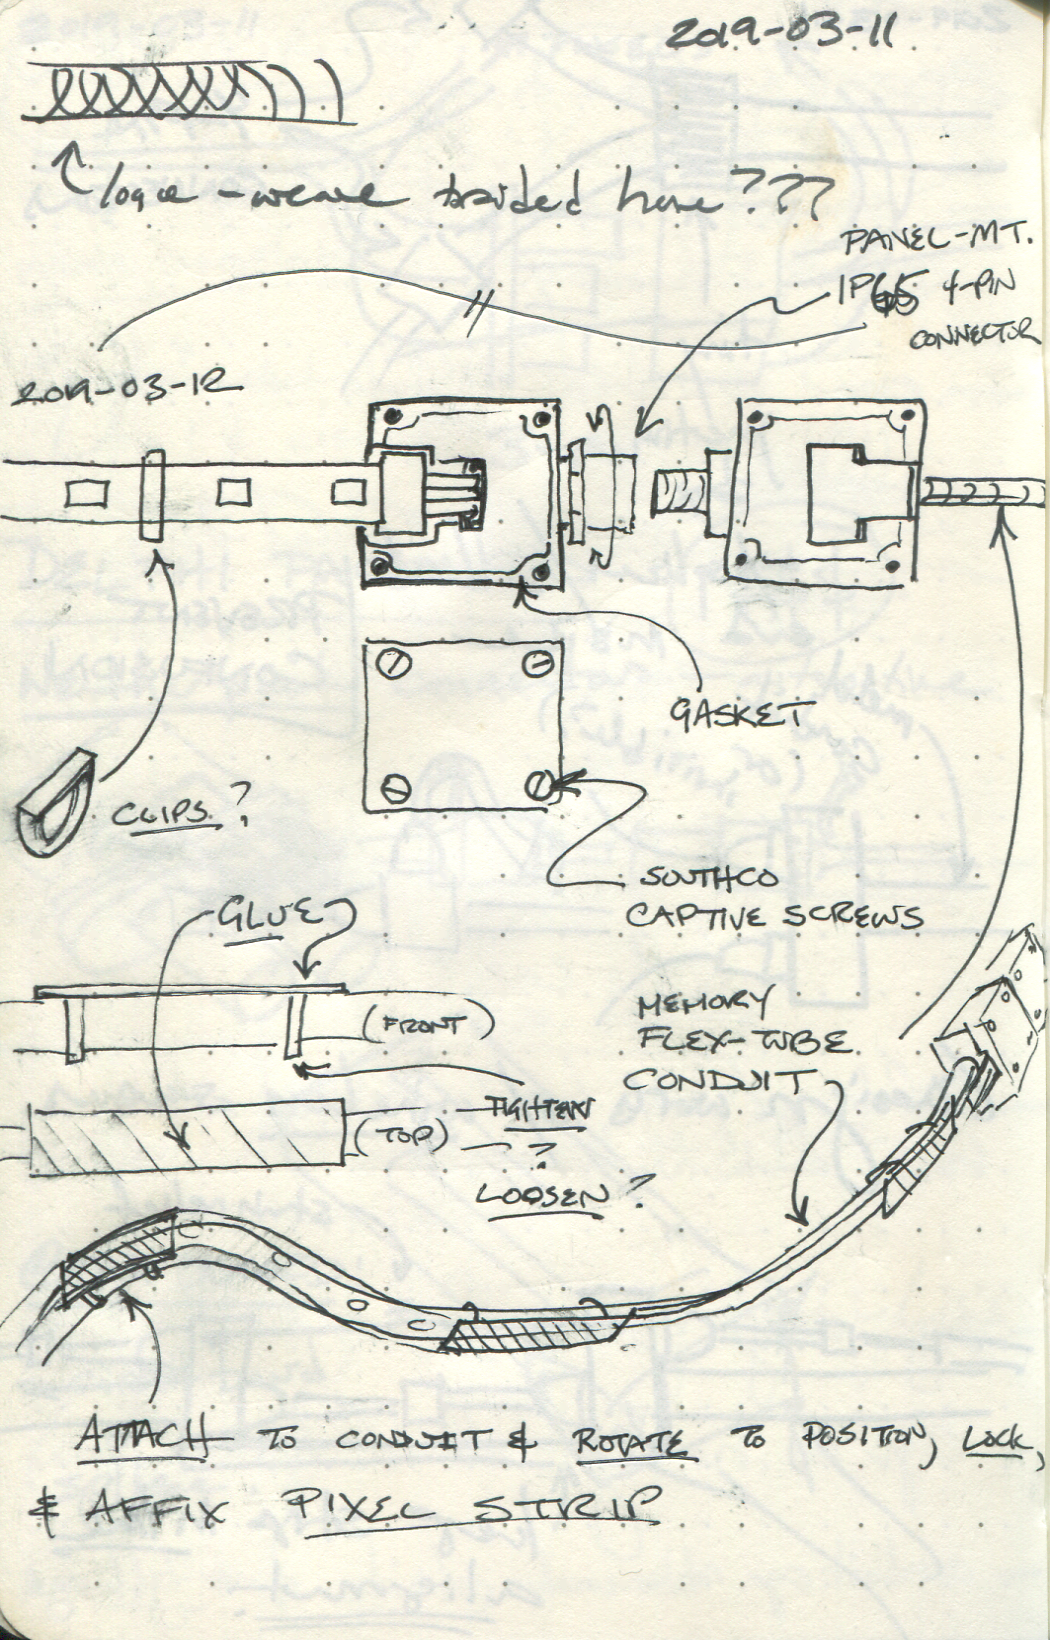 2019-03-11
loose-weave braided here???
PANEL-MT.
IP65 4-PIN
CONNECTOR
2019-03-12
GASKET
CLIPS?
SOUTHCO
CAPTIVE SCREWS
GLUE
(FRONT)
MEMORY
FLEX-TUBE
CONDUIT
TIGHTEN
(TOP)
?
LOOSEN?
ATTACH TO CONDUIT & ROTATE TO POSITION, LOCK,
& AFFIX PIXEL STRIP